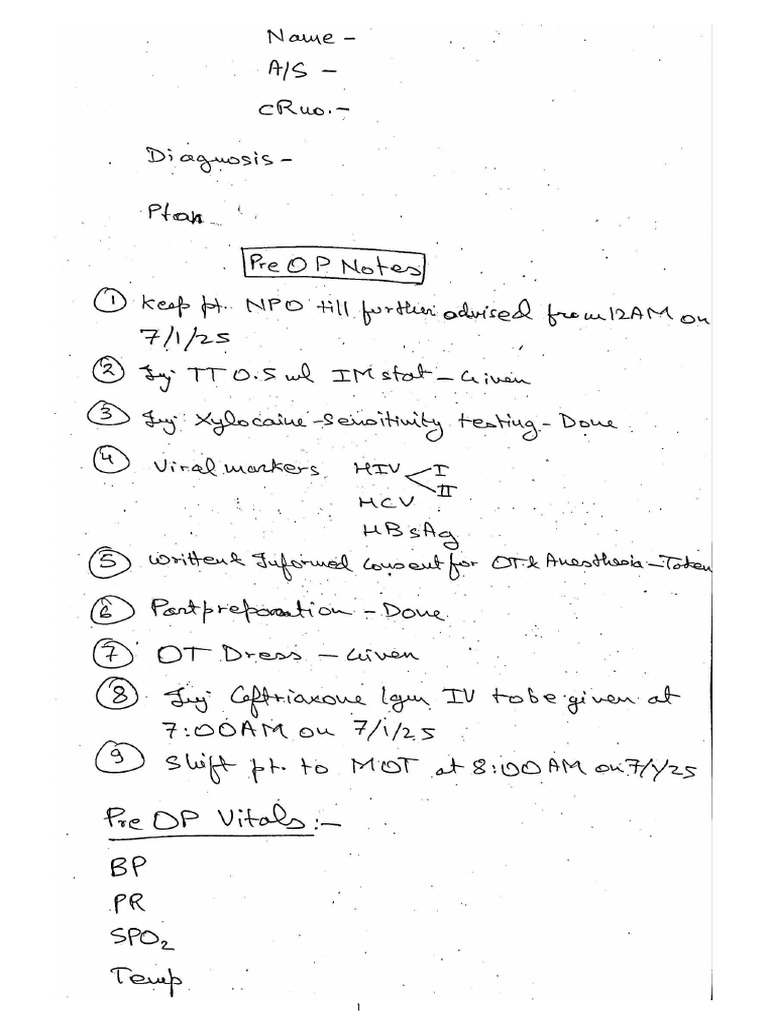 Name -
A/S -
CRno. -
Diagnosis -
Plan -
Pre OP Notes
① Keep pt. NPO till further advised from 12AM on
7/1/25
② Inj. TT 0.5ml IM stat - Given
③ Inj. Xylocaine - Sensitivity testing - Done
④ Viral markers HIV < I
II
HCV
HBsAg
⑤ Written & Informed Consent for OT & Anesthesia - Taken
⑥ Part preparation - Done
⑦ OT Dress - Given
⑧ Inj. Ceftriaxone 1gm IV to be given at
7:00AM on 7/1/25
⑨ Shift pt. to MOT at 8:00AM on 7/1/25
Pre OP Vitals :-
BP
PR
SPO₂
Temp
1